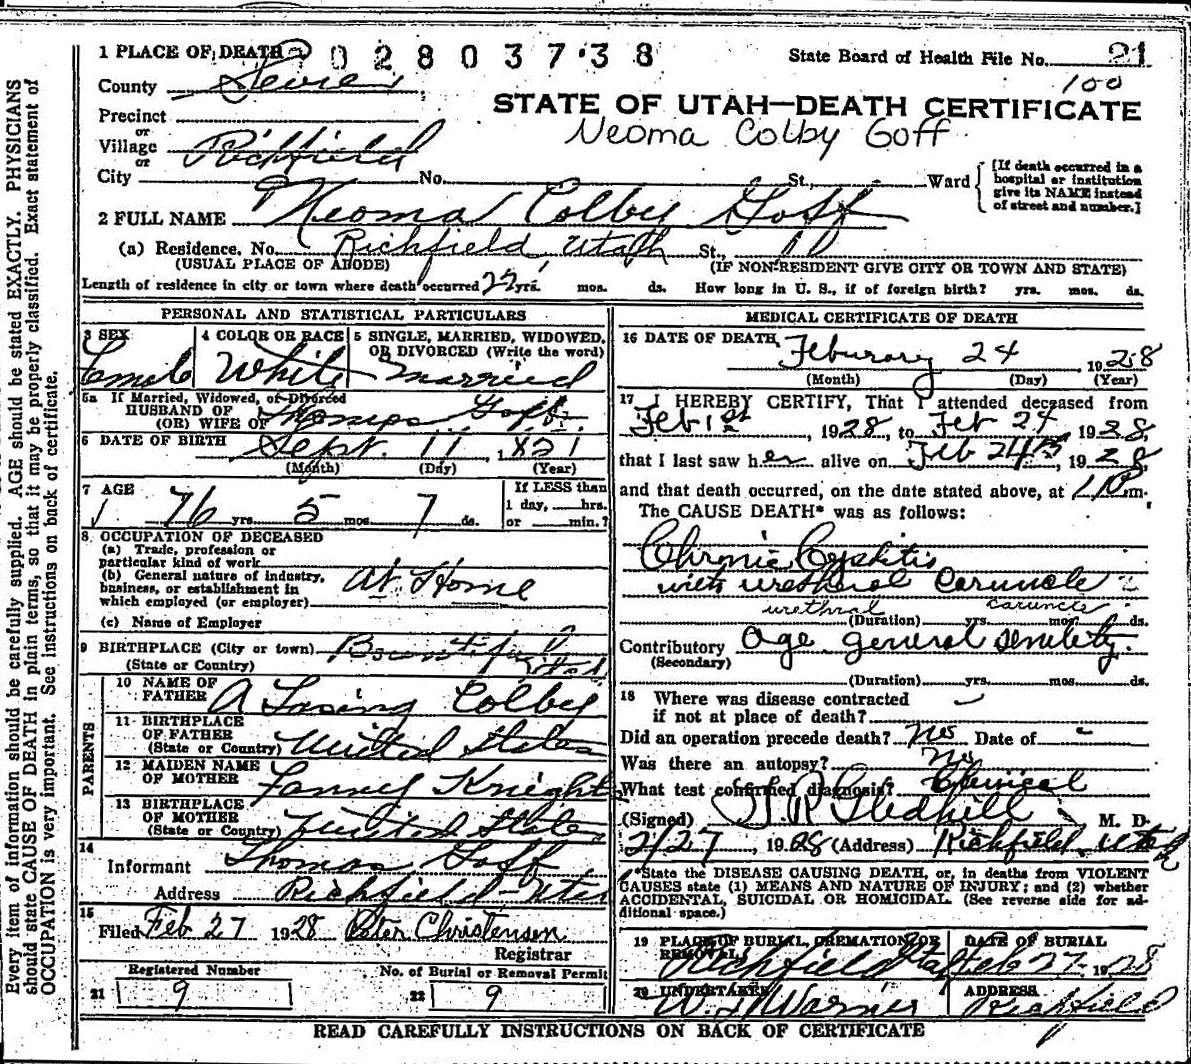 Every item of information should be carefully supplied. AGE should be stated EXACTLY. PHYSICIANS
should state CAUSE OF DEATH in plain terms, so that it may be properly classified. Exact statement of
OCCUPATION is very important. See instructions on back of certificate.
1 PLACE OF DEATH 028037·38 State Board of Health File No. 21
100
County Sevier
STATE OF UTAH—DEATH CERTIFICATE
Precinct
or
Neoma Colby Goff
Village Richfield
or
City No. St., Ward
[If death occurred in a
hospital or institution
give its NAME instead
of street and number.]
2 FULL NAME Neoma Colby Goff
(a) Residence. No. Richfield Utah St.,
(USUAL PLACE OF ABODE) (IF NON-RESIDENT GIVE CITY OR TOWN AND STATE)
Length of residence in city or town where death occurred 22 yrs. mos. ds. How long in U. S., if of foreign birth? yrs. mos. ds.
PERSONAL AND STATISTICAL PARTICULARS
3 SEX 4 COLOR OR RACE 5 SINGLE, MARRIED, WIDOWED,
OR DIVORCED (Write the word)
Female White Married
5a If Married, Widowed, or Divorced
HUSBAND OF
(OR) WIFE OF Thomas Goff
6 DATE OF BIRTH Sept. 11 1851
(Month) (Day) (Year)
7 AGE If LESS than
76 yrs. 5 mos. 7 ds. 1 day, hrs.
or min.?
8. OCCUPATION OF DECEASED
(a) Trade, profession or
particular kind of work
(b) General nature of industry,
business, or establishment in
which employed (or employer) At Home
(c) Name of Employer
9 BIRTHPLACE (City or town) Bountiful
(State or Country) Utah
PARENTS
10 NAME OF
FATHER Colby
11 BIRTHPLACE
OF FATHER
(State or Country) United States
12 MAIDEN NAME
OF MOTHER Fanney Knight
13 BIRTHPLACE
OF MOTHER
(State or Country) United States
14
Informant Thomas Goff
Address Richfield Utah
15
Filed Feb 27 1928 Peter Christensen
Registrar
Registered Number No. of Burial or Removal Permit
21 9 22 9
MEDICAL CERTIFICATE OF DEATH
16 DATE OF DEATH Feburary 24, 1928
(Month) (Day) (Year)
17 I HEREBY CERTIFY, That I attended deceased from
Feb 1st, 1928, to Feb 24 1928,
that I last saw her alive on Feb 24th, 1928,
and that death occurred, on the date stated above, at 1 P m.
The CAUSE DEATH* was as follows:
Chronic Cystitis
with urethral Caruncle
urethral caruncle
(Duration) yrs. mos. ds.
Contributory Age general senility.
(Secondary)
(Duration) yrs. mos. ds.
18 Where was disease contracted
if not at place of death?
Did an operation precede death? No Date of -
Was there an autopsy? No
What test confirmed diagnosis? Clinical
(Signed) Gledhill M. D.
2/27, 1928 (Address) Richfield Utah
*State the DISEASE CAUSING DEATH, or, in deaths from VIOLENT
CAUSES state (1) MEANS AND NATURE OF INJURY; and (2) whether
ACCIDENTAL, SUICIDAL OR HOMICIDAL. (See reverse side for ad-
ditional space.)
19 PLACE OF BURIAL, CREMATION, OR DATE OF BURIAL
REMOVAL
Richfield Utah Feb 27 1928
20 UNDERTAKER ADDRESS
Warner Richfield
READ CAREFULLY INSTRUCTIONS ON BACK OF CERTIFICATE